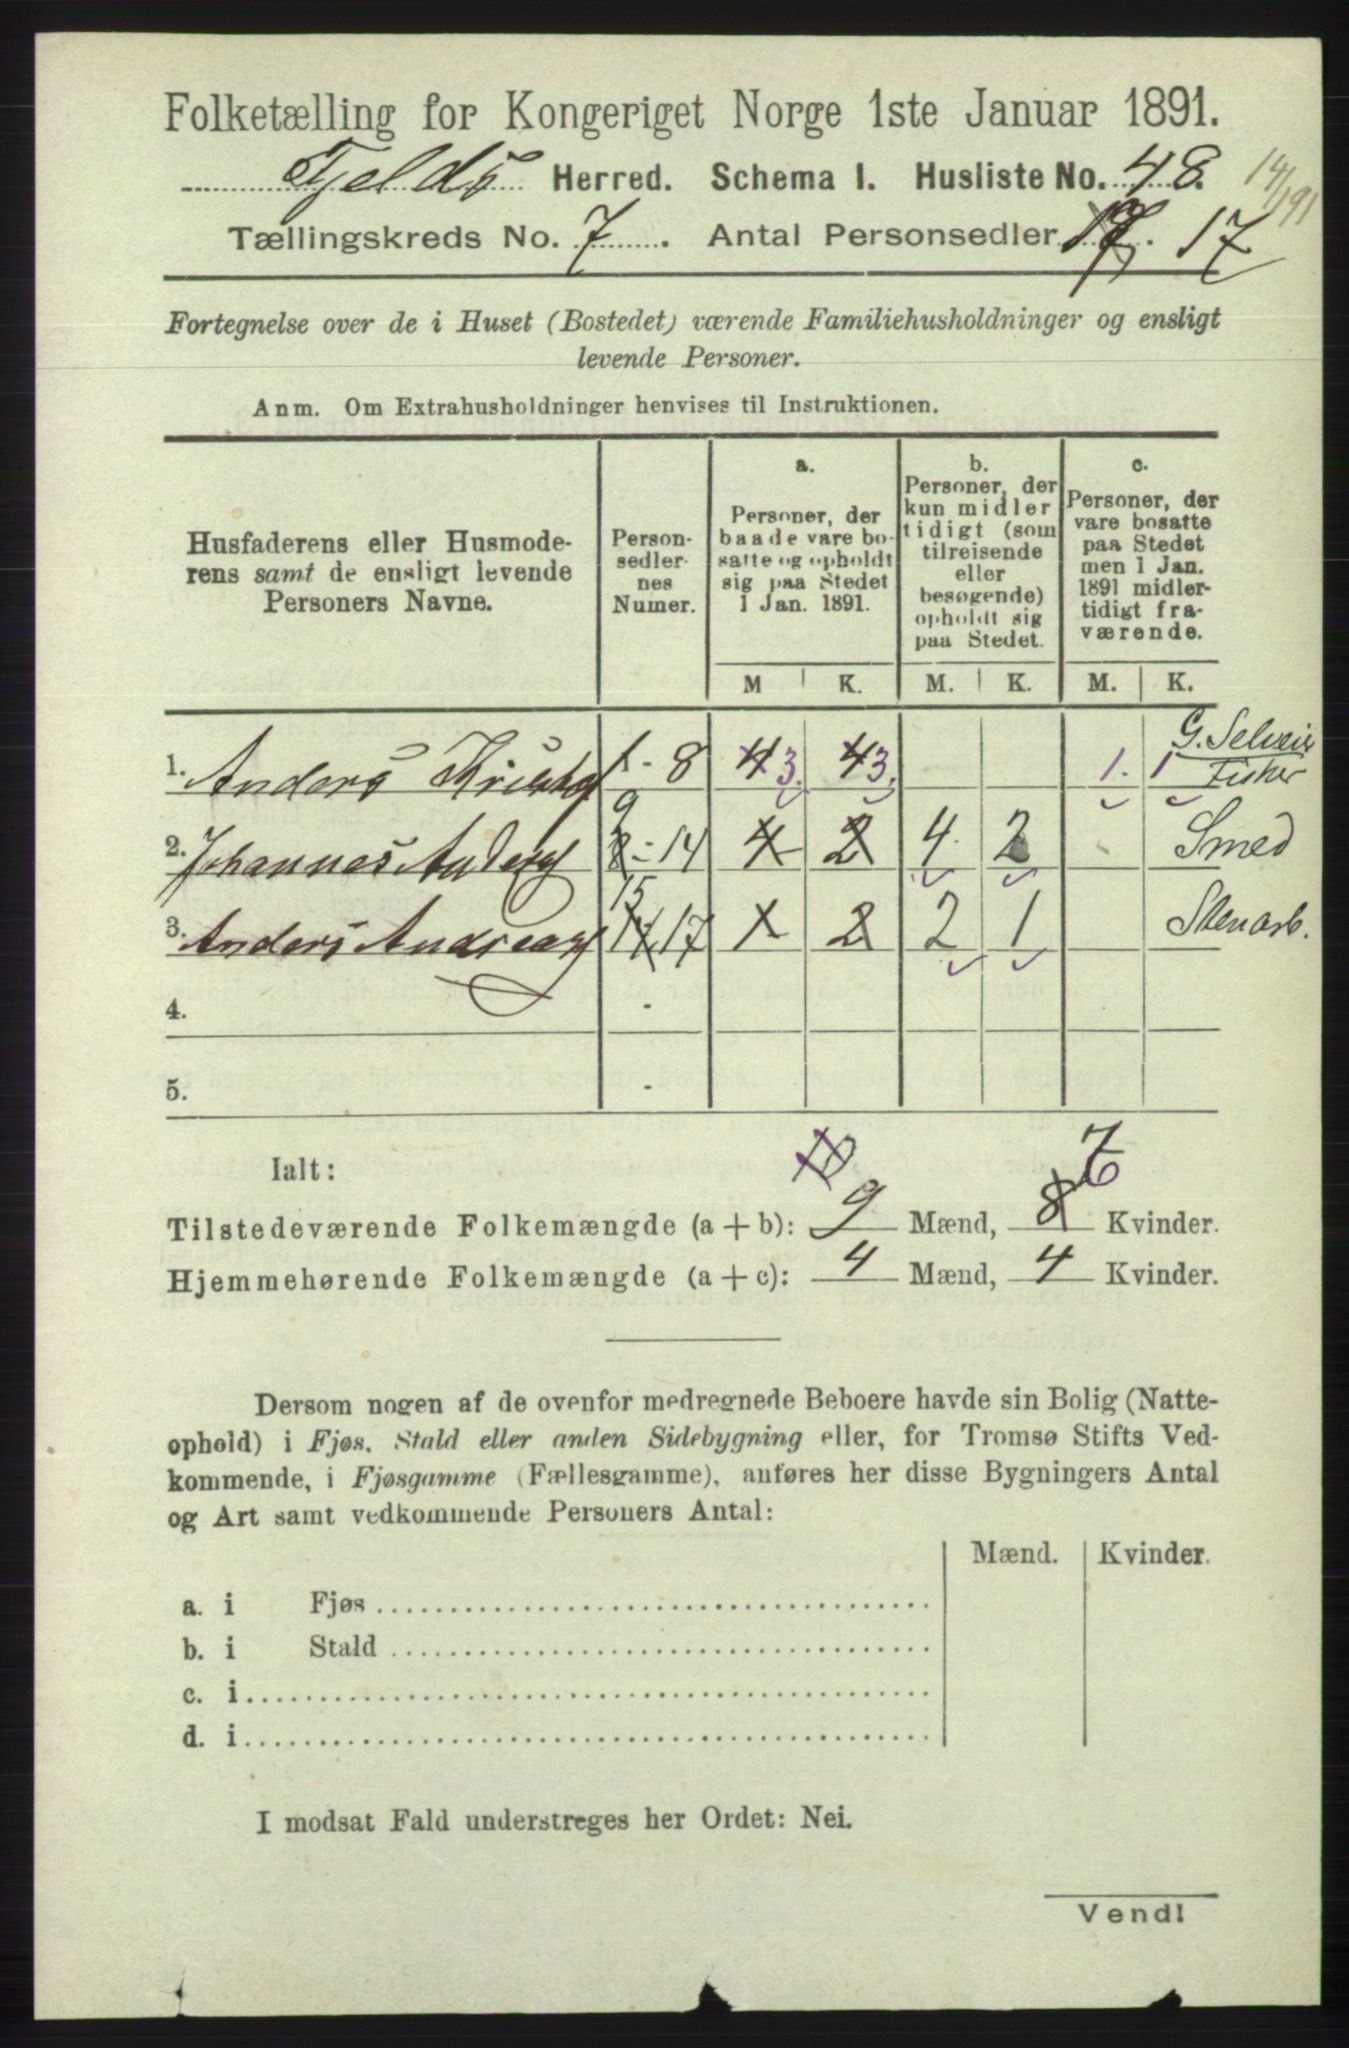 Folketælling for Kongeriget Norge 1ste Januar 1891.
Fjeldö Herred. Schema I. Husliste No. 48. 14/1 91
Tællingskreds No. 7. Antal Personsedler 17
Fortegnelse over de i Huset (Bostedet) værende Familiehusholdninger og ensligt
levende Personer.
Anm. Om Extrahusholdninger henvises til Instruktionen.
Husfaderens eller Husmode-
rens samt de ensligt levende
Personers Navne.
Person-
sedler-
nes
Numer.
a.
Personer, der
baade vare bo-
satte og opholdt
sig paa Stedet
1 Jan. 1891.
b.
Personer, der
kun midler
tidigt (som
tilreisende
eller
besøgende)
opholdt sig
paa Stedet.
c.
Personer, der
vare bosatte
paa Stedet
men 1 Jan.
1891 midler-
tidigt fra-
værende.
M K. M. K. M. K.
1. Anders 1 - 8 4 3. 4 3. 1. 1 G. Selveier
Fisker
2. Johannes 8 9 - 14 4 2 4. 2 Smed
3. Anders Andreas 15 17 1 2 2 1 Stenarb.
4. -
5. -
Ialt:
Tilstedeværende Folkemængde (a + b): 9 Mænd, 8 7 Kvinder.
Hjemmehørende Folkemængde (a + c): 4 Mænd, 4 Kvinder.
Dersom nogen af de ovenfor medregnede Beboere havde sin Bolig (Natte-
ophold) i Fjøs, Stald eller anden Sidebygning eller, for Tromsø Stifts Ved-
kommende, i Fjøsgamme (Fællesgamme), anføres her disse Bygningers Antal
og Art samt vedkommende Personers Antal:
Mænd. Kvinder.
a. i Fjøs
b. i Stald
c. i
d. i
I modsat Fald understreges her Ordet: Nei.
Vend!